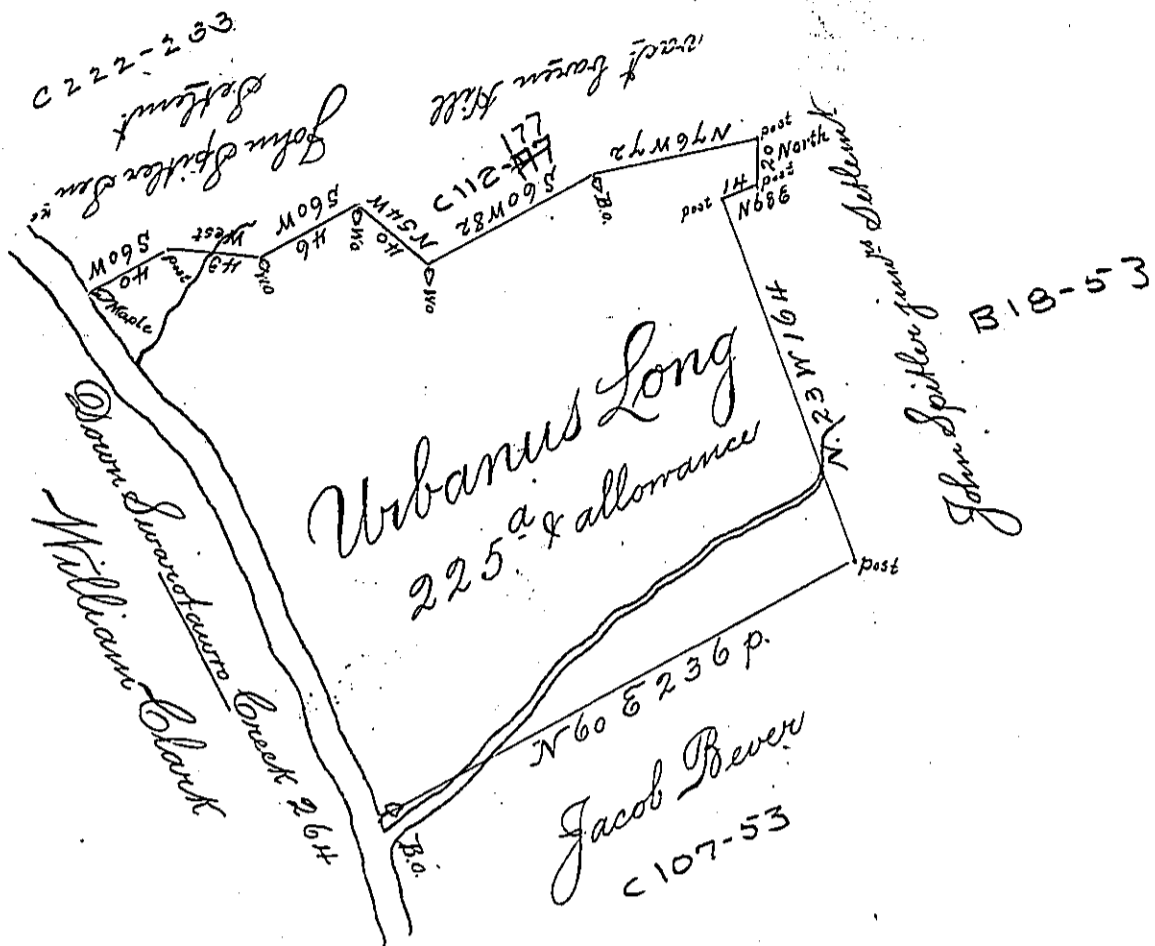 C 222-233
John Spitler Sen
Setlemt
vact. baren Hill
C112-177
S60W
40
Maple
post
West
43
W.O
S60W
46
W.O
N54W
40
W.O
S60W82
B.O.
N76W72
post
North
20
post
N68E
14
post
N. 23 W 164
John Spitler junr's Setlemt.
B18-53
Urbanus Long
225 a & allowance
post
N 60 E 236 p.
Jacob Bever
C107-53
B.O.
Down Swarotawro Creek 264
William Clark